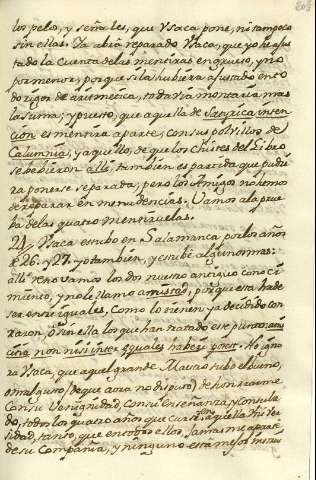 los pelos, y señales, que Ysaca pone, ni tampoco
sin ellas. Ya abrá reparado Ysaca, que yo he ajus
tado la Cuenta de las mentiras en grueso, y no
por menor; porque si la hubiera ajustado en to
do rigor de aritmetica, todavia montaria mas
la suma; y puesto, que aquella de Satyrica inven
cion es mentira aparte, con sus polvillos de
Calumnia; y aquello, de que los Chistes del Libro
se bebieron allà, tambien es partida que pudie
ra ponerse separada; pero los Amigos no hemos
de reparar en menudencias. Vamos a la prue
ba de las quatro mentiruelas.
24 Ysaca estubo en Salamanca por los años
de 26. y 27. yo tambien, y estube algunos mas:
alli renovamos los dos nuestro antiguo conoci
miento, y no le llamo amistad, porque esta ha de
ser entre iguales, Como lo tienen ya decidido con
razon, ò sin ella los que han tratado este punto:
non nisi inter æquales haberi potest. No igno
ra Ysaca, que aquel grande Maestro tubo el bueno,
o mal gusto (de que aora no disputo) de honrarme
con su Venignidad, con su Enseñanza, y Consula
do, todos los quatro años que cursè en aquella Vniver
sidad, tanto, que en todos ellos jamas me apartè
de su Compañia, y ninguno està mejor